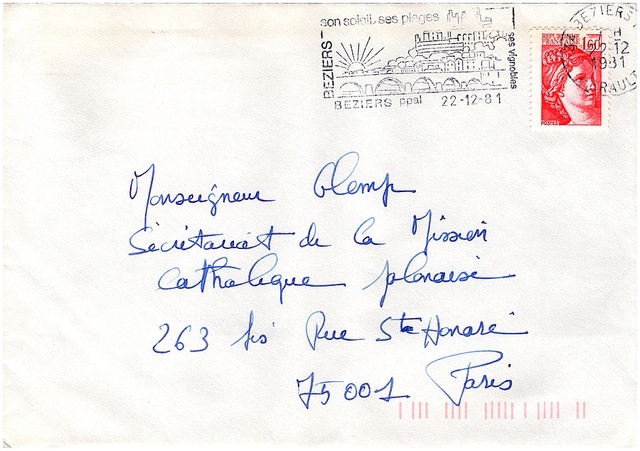 son soleil, ses plages
BEZIERS
ses vignobles
BEZIERS ppal 22-12-81
BEZIERS
12
1981
1,60
Monseigneur Glemp
Sécrétariat de la Mission
Catholique polonaise
263 bis Rue Ste Honoré
75001 Paris